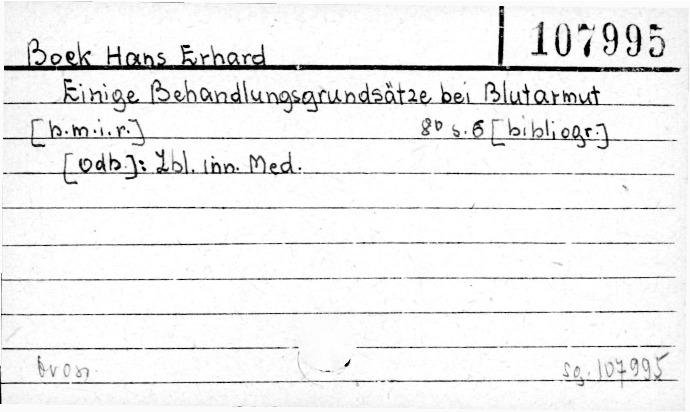 107995
Boek Hans Erhard
Einige Behandlungsgrundsätze bei Blutarmut
[b.m.i.r.] 8° s. 6 [bibliogr.]
[Odb.]: Zbl. inn. Med.
brosz.
sg. 107995